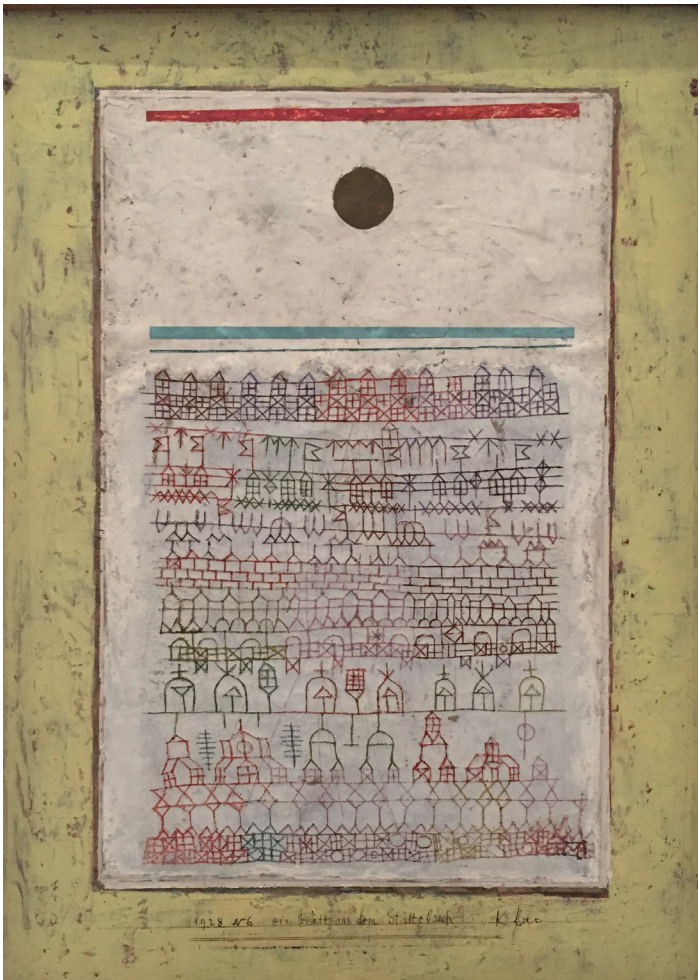 1928 N 6 ein Blatt aus dem Städtebuch Klee